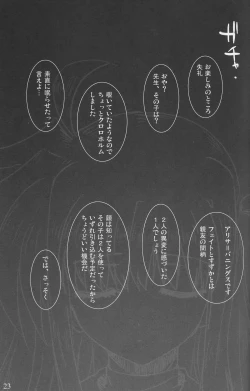 ガチャ
お楽しみのところ、
失礼
おや？
先生、その子は？
覗いていたようなので
ちょっとクロロホルム
しました
素直に眠らせたって
言えよ…
アリサ＝バニングスです
フェイトとすずかとは
親友の間柄
2人の異変に感づいた
1人でしょう
顔は知ってる
その子は2人を使って
いずれ引き込む予定だったから
ちょうどいい機会だ
では、さっそく
23